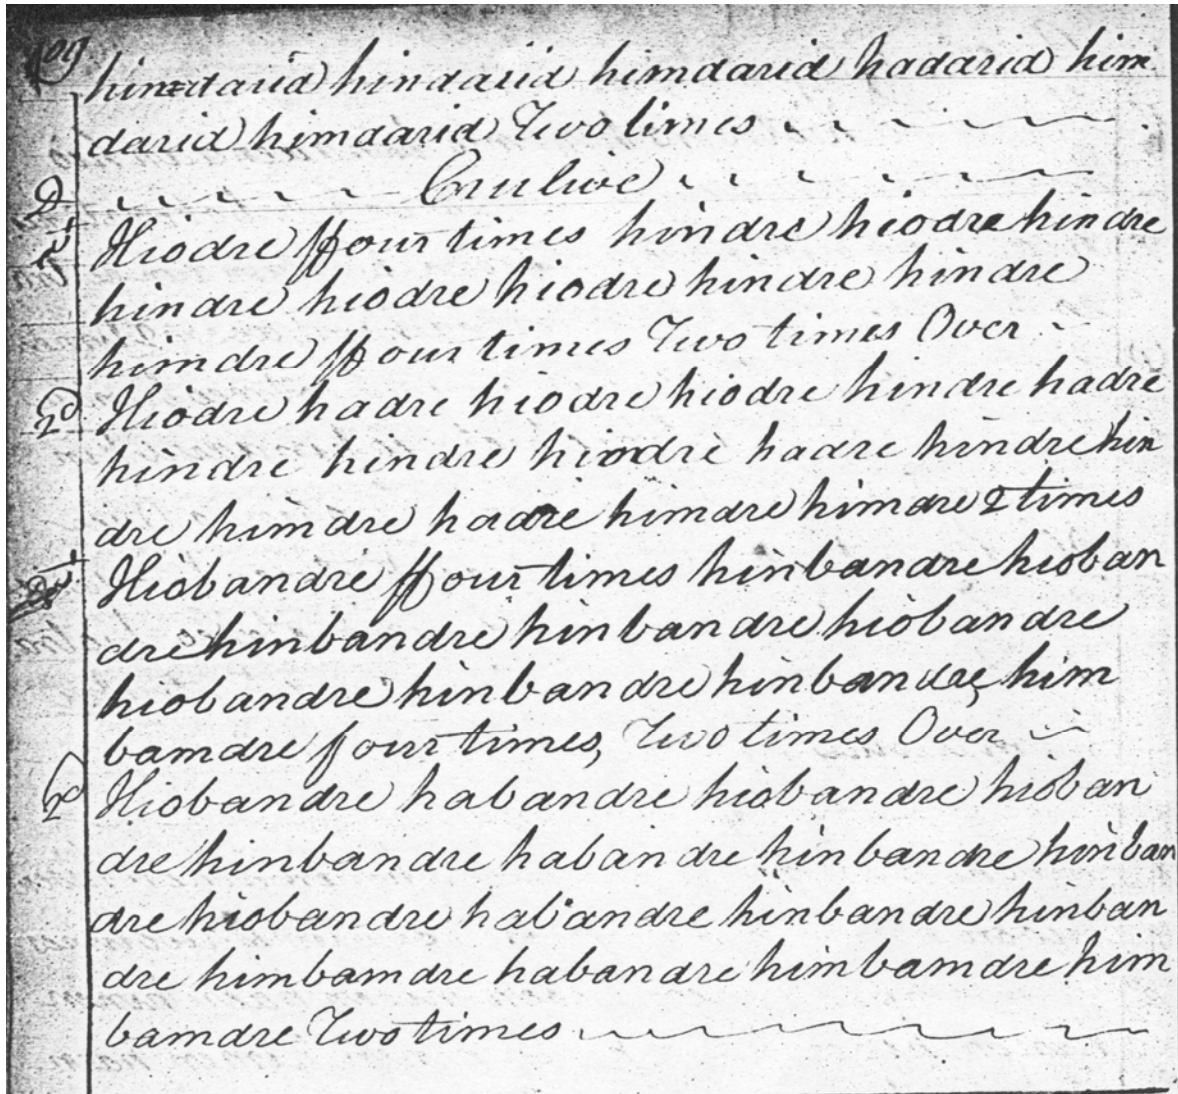 himdarid hindarid himdarid hadarid him
darid himdarid Two times
D Crulive
1st Hiodre ffour times hindre hiodre hindre
hindre hiodre hiodre hindre hindre
himdre ffour times Two times Over
2d Hiodre hadre hiodre hiodre hindre hadre
hindre hindre hiodre hadre hindre hin
dre himdre hadre himdre himdre 2 times
1st Hiobandre ffour times hinbandre hioban
dre hinbandre hinbandre hiobandre
hiobandre hinbandre hinbandre, him
bamdre four times, Two times Over
2d Hiobandre habandre hiobandre hioban
dre hinbandre habandre hinbandre hinban
dre hiobandre habandre hinbandre hinban
dre himbamdre habandre himbamdre him
bamdre Two times